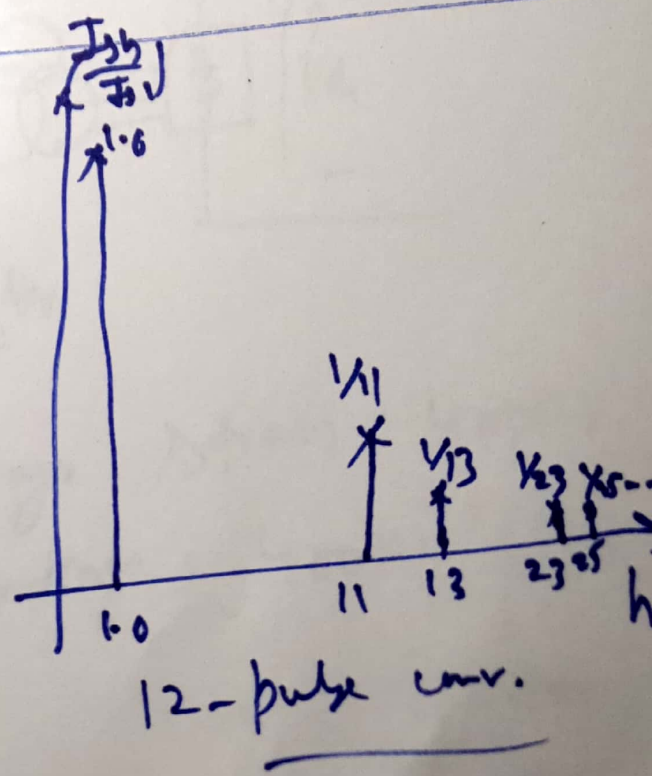 Ish
Is1
1.0
1/11
1/13 1/23 1/25--
1.0 11 13 23 25 h
12-pulse conv.